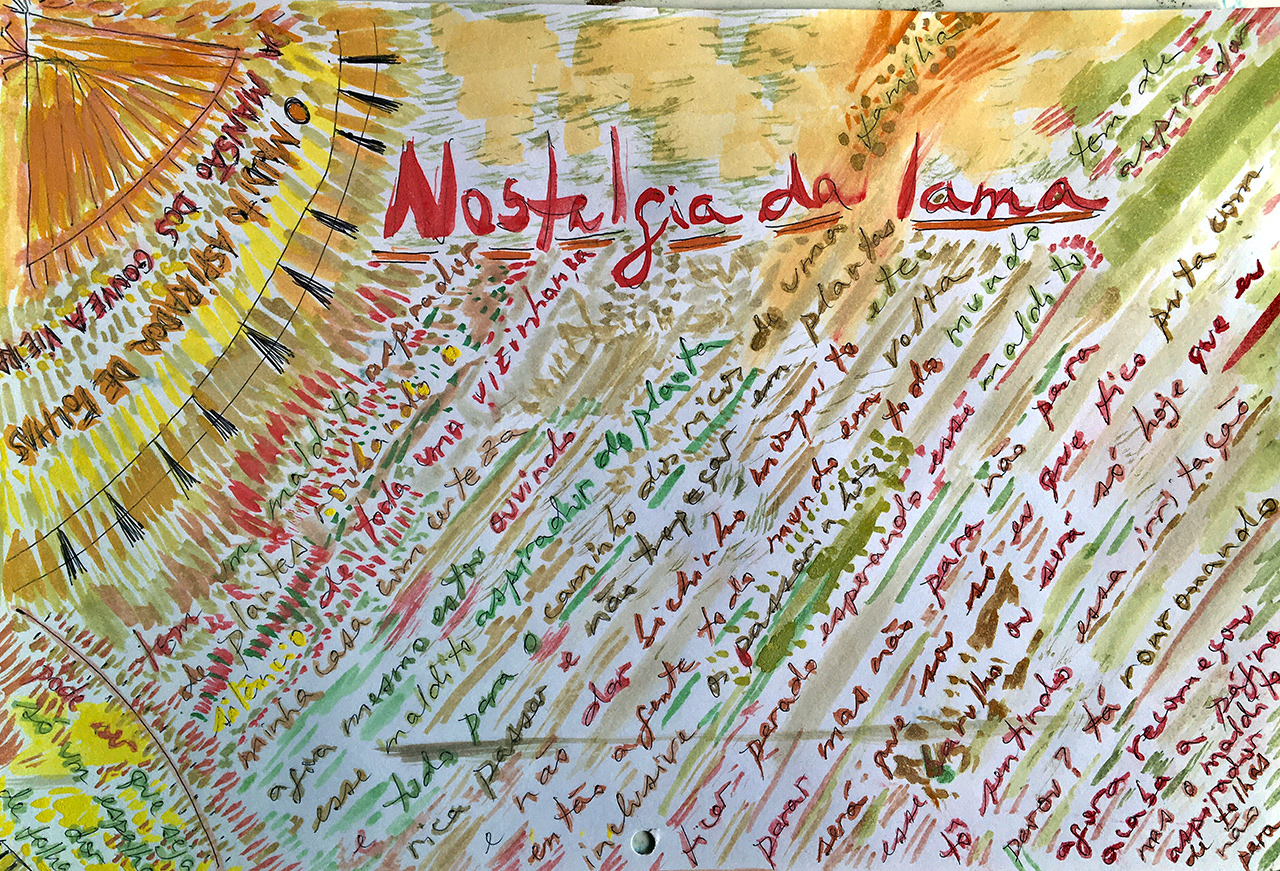 Nostalgia da lama
O MALDITO ASPIRADOR DE FOLHAS
MANSÃO DOS
tem um maldito aspirador
de plantas
roubando
o silêncio de toda uma vizinhança
minha casa com certeza
agora mesmo estou ouvindo
esse maldito aspirador de planta
e todo para o caminho dos micos
rica passar e não tropeçar em
de uma família
plantas
e não dar bichinho mosquito etc
então a gente todo mundo em volta
inclusive os passarinhos todo mundo
ficar parado esperando esse maldito
tem de aspirador
parar mas não para não para
será que só eu que fico puta com
esse barulho ou será só hoje que eu
tô sentindo essa irritação
parou? tá ronronando
agora recomeçou
acaba a página
mas o maldito
aspirador
de folhas
não
para
pode ser
só um
que seja
espelho
dor
de folha